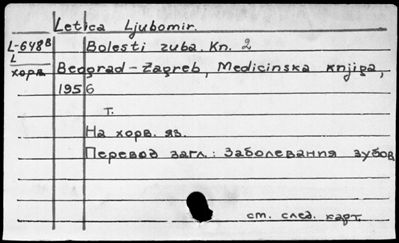 Letica Ljubomir.
L-648В Bolesti zuba. Kn. 2
L
хорв. Beograd-Zagreb, Medicinska knjiga,
1956
т.
На хорв. яз.
Перевод загл.: Заболевания зубов
см. след. карт.